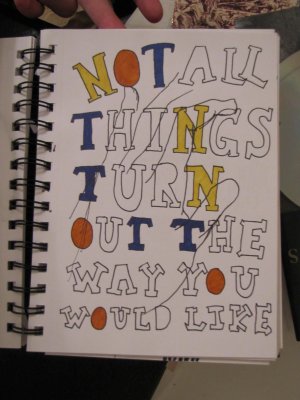 NOT ALL
THINGS
TURN
OUT THE
WAY YOU
WOULD LIKE